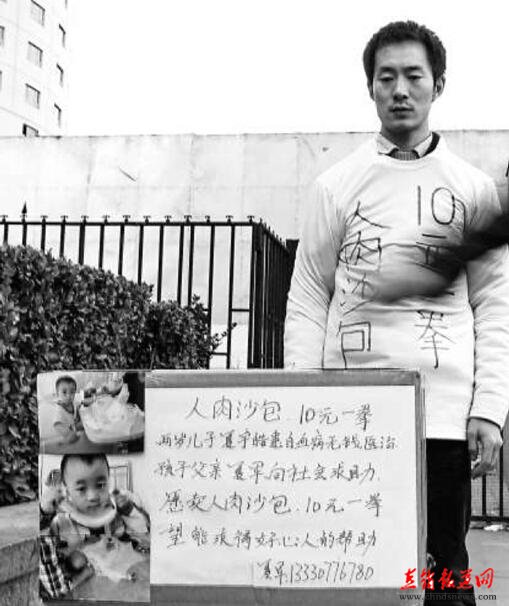 人肉沙包
10元一拳
人肉沙包.10元一拳
两岁儿子夏宇皓患白血病无钱医治
孩子父亲夏军向社会求助.
愿卖人肉沙包.10元一拳
望能获得好心人的帮助
夏军13330776780
www.chndsnews.com